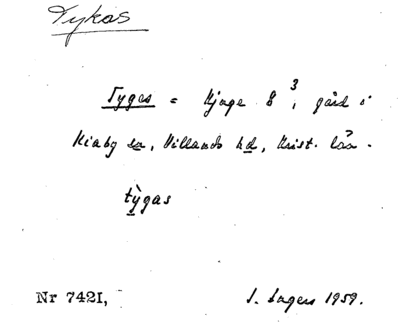 Tykas
Tygas = Kjuge 8³, gård i
Kiaby sn, Villands hd, Krist. län.
tỳgas
Nr 7421, I. Ingers 1959.